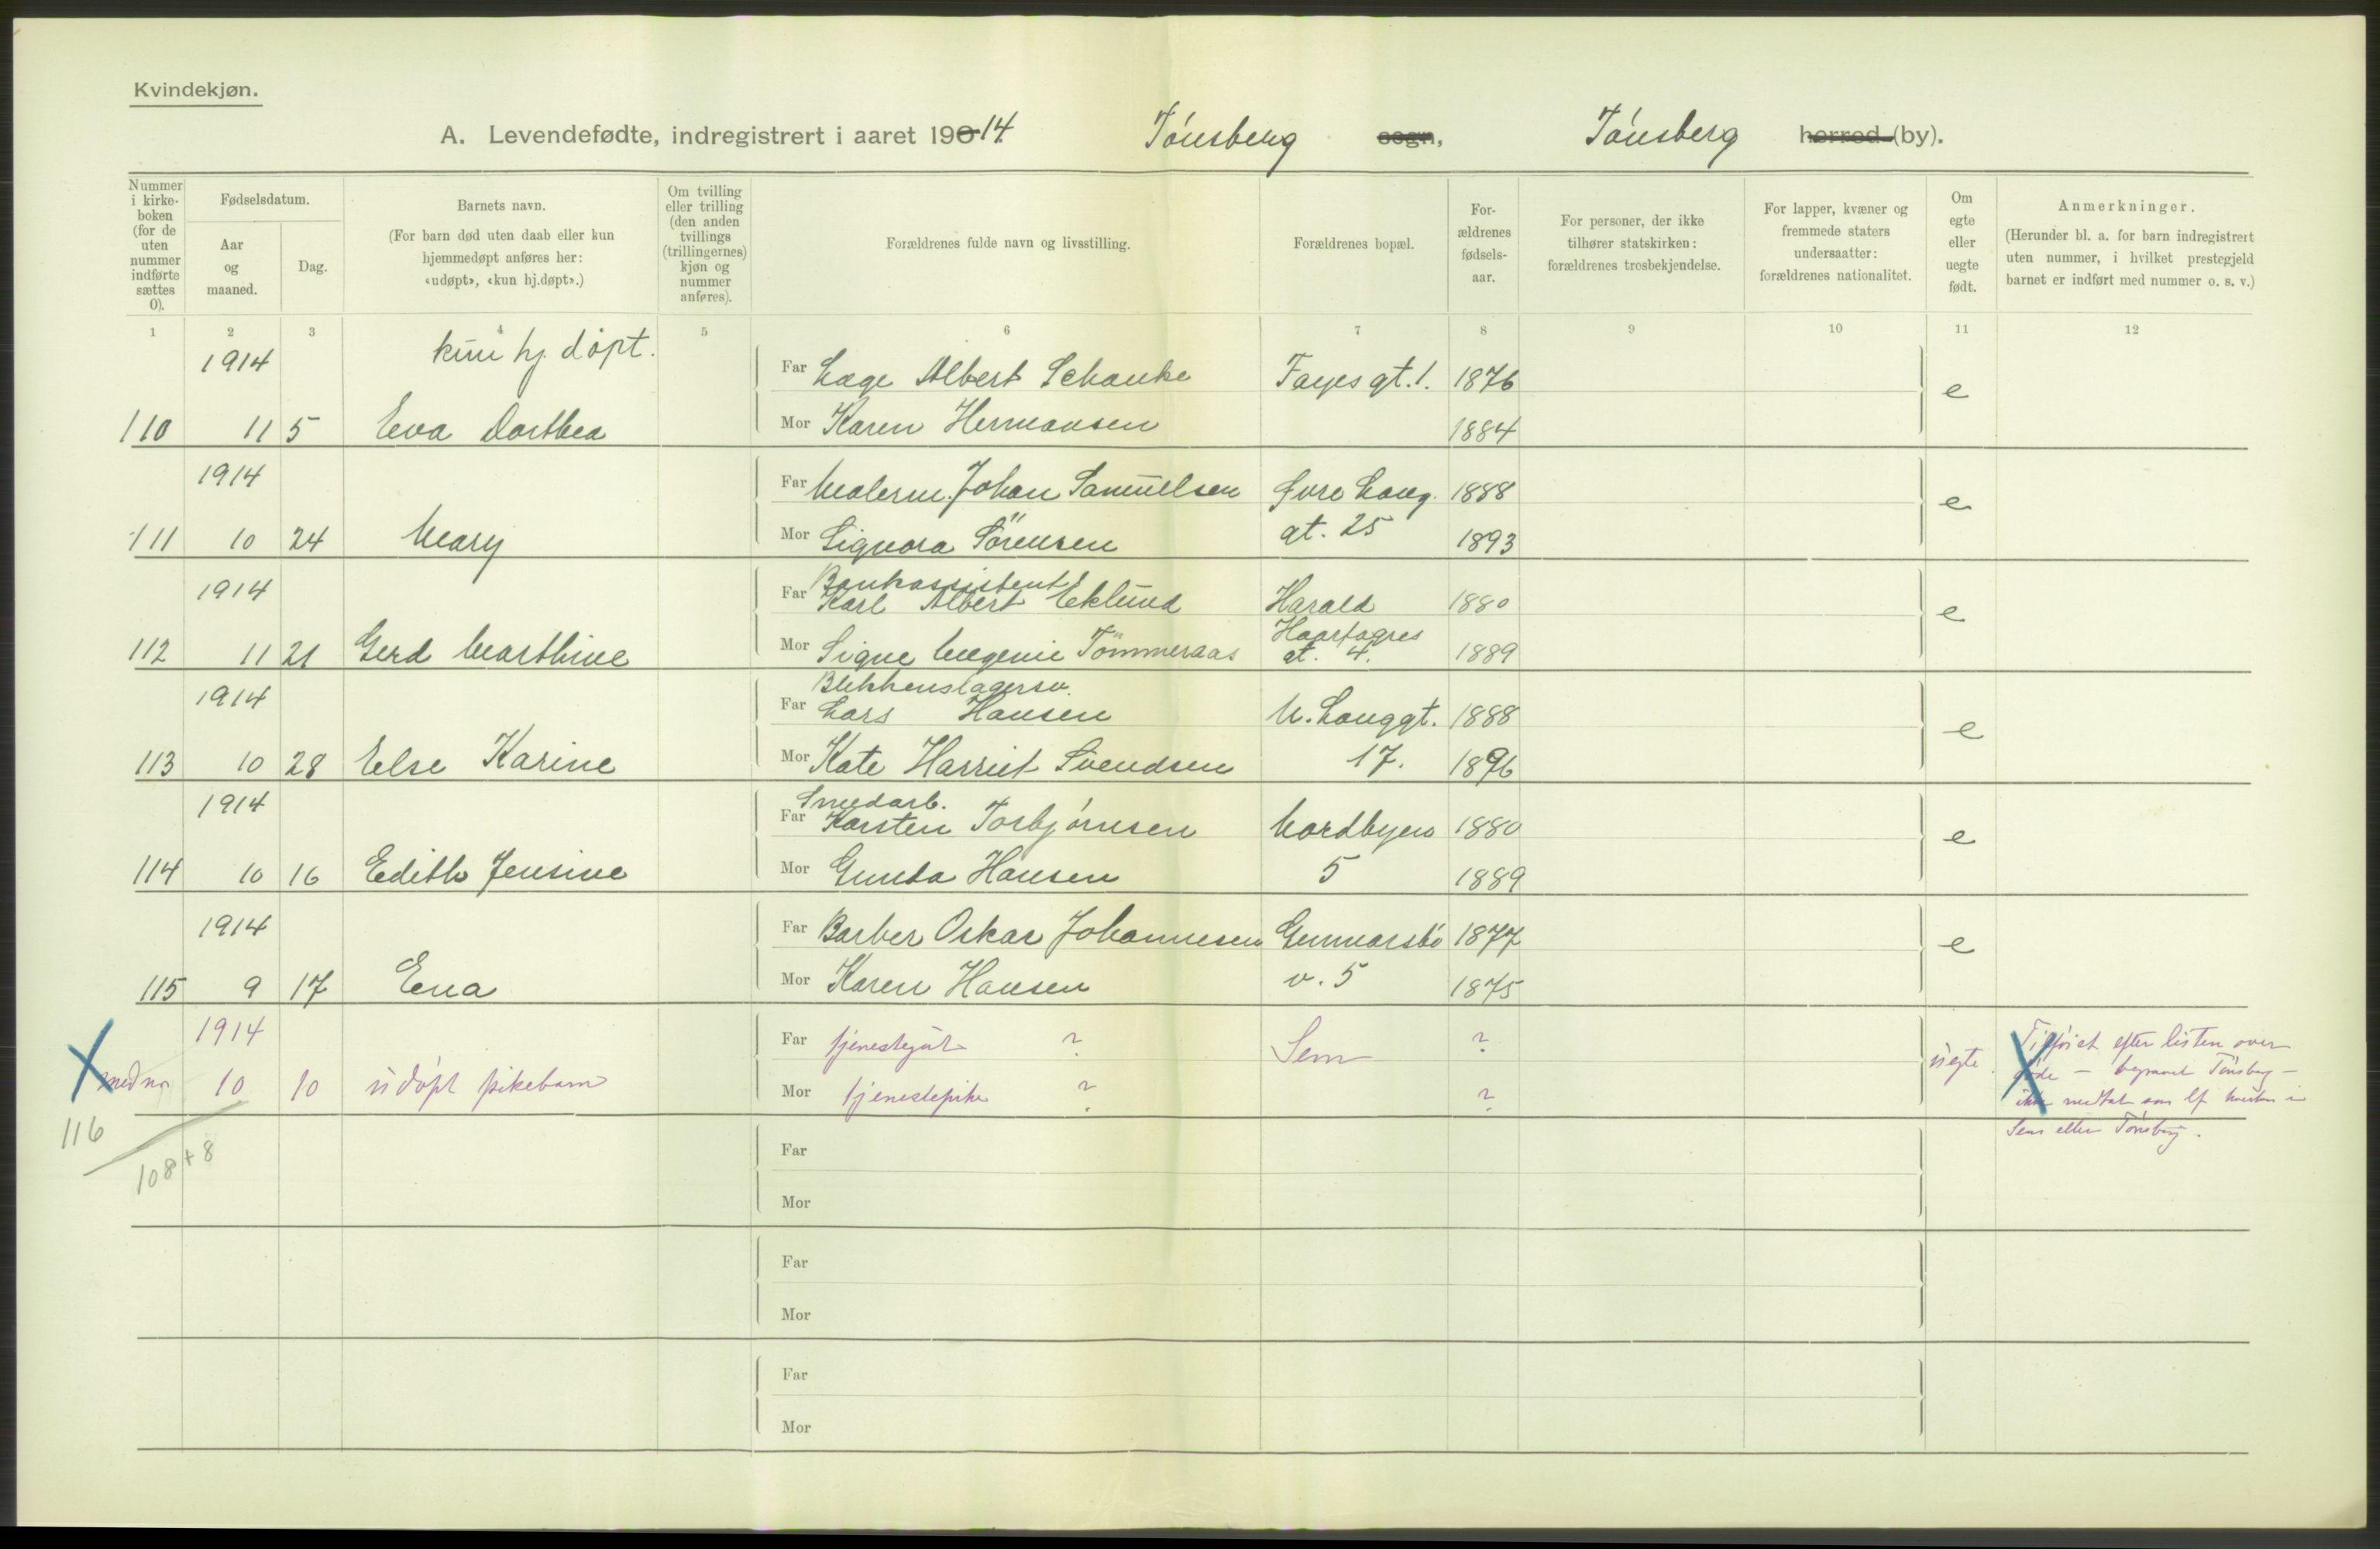 Kvindekjøn.
A. Levendefødte, indregistrert i aaret 19014 Tønsberg sogn, Tønsberg herred (by).
Nummer i kirke-boken (for de uten nummer indførte sættes 0).
Fødselsdatum.
Aar og maaned.
Dag.
Barnets navn.
(For barn død uten daab eller kun hjemmedøpt anføres her: «udøpt», «kun hj.døpt».)
Om tvilling eller trilling (den anden tvillings (trillingernes) kjøn og nummer anføres).
Forældrenes fulde navn og livsstilling.
Forældrenes bopæl.
For-ældrenes fødsels-aar.
For personer, der ikke tilhører statskirken: forældrenes trosbekjendelse.
For lapper, kvæner og fremmede staters undersaatter: forældrenes nationalitet.
Om egte eller uegte født.
Anmerkninger.
(Herunder bl. a. for barn indregistrert uten nummer, i hvilket prestegjeld barnet er indført med nummer o. s. v.)
1 2 3 4 5 6 7 8 9 10 11 12
1914 kun hj. døpt. Far Læge Albert Schanke Fayesgt. 1. 1876 e
110 11 5 Eva Dorthea Mor Karen Hermansen 1884
1914 Far Malerm. Johan Samuelsen Øvre Lang. 1888 e
111 10 24 Mary Mor Signora Sörensen gt. 25 1893
Bankassistent
1914 Far Karl Albert Eklund Harald 1880 e
Haarfagres
112 11 21 Gerd Marthine Mor Signe Eugenie Tömmeraas gt. 4. 1889
Blikkenslagersv.
1914 Far Lars Hansen N. Langgt. 1888 e
113 10 28 Else Karine Mor Kate Harriet Svendsen 17. 1896
Smedarb.
1914 Far Karsten Torbjørnsen Nordbyen 1880 e
114 10 16 Edith Jensine Mor Gunda Hansen 5 1889
1914 Far Barber Oskar Johannesen Gunnarsbø 1877 e
115 9 17 Ena Mor Karen Hansen v. 5 1875
1914 Far tjenestegut ? Sem ? uegte.
10 10 udøpt pikebarn Mor tjenestepike ? ?
Tilføiet efter listen over
døde — begravet Tönsberg —
ikke medtat som lf hverken i
Sem eller Tönsberg.
116
108+8
Far
Mor
Far
Mor
Far
Mor